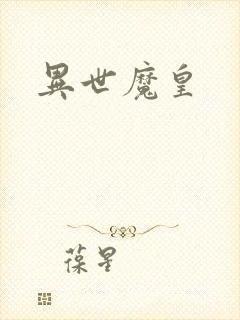 異世魔皇
葆星